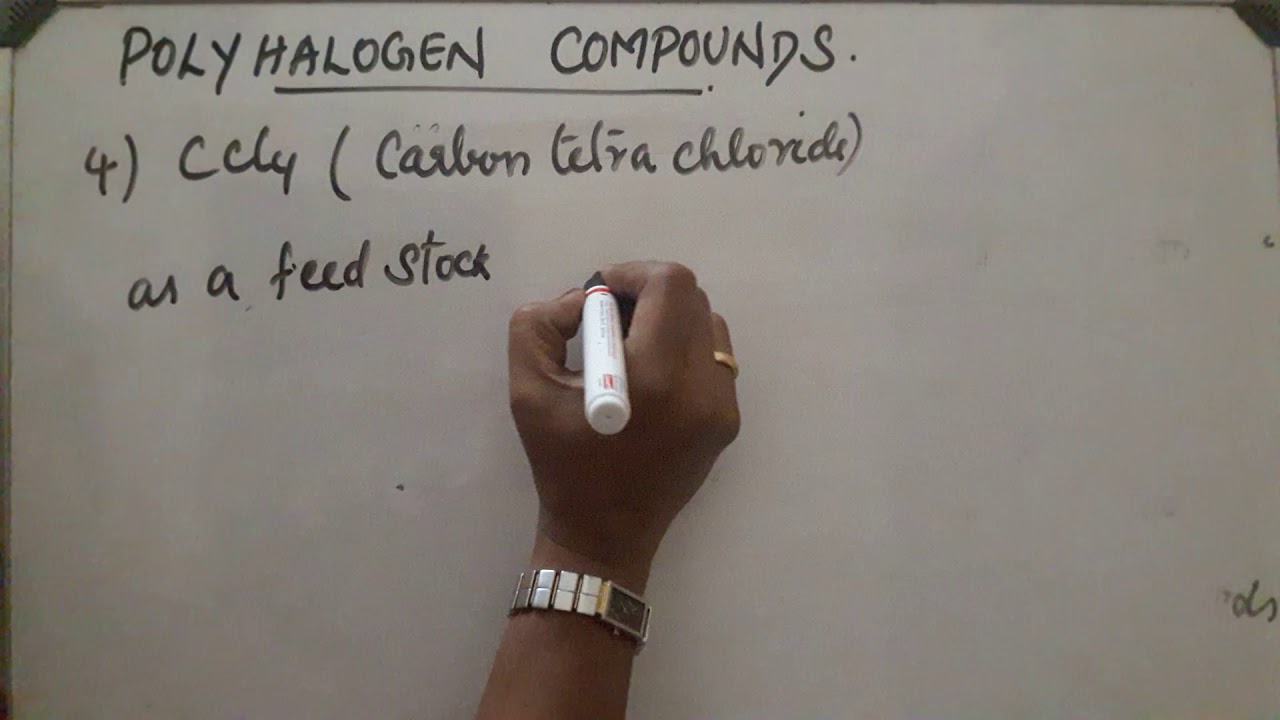 POLYHALOGEN COMPOUNDS.
4) CCl4 ( Carbon tetra chloride)
as a feed stock
ds